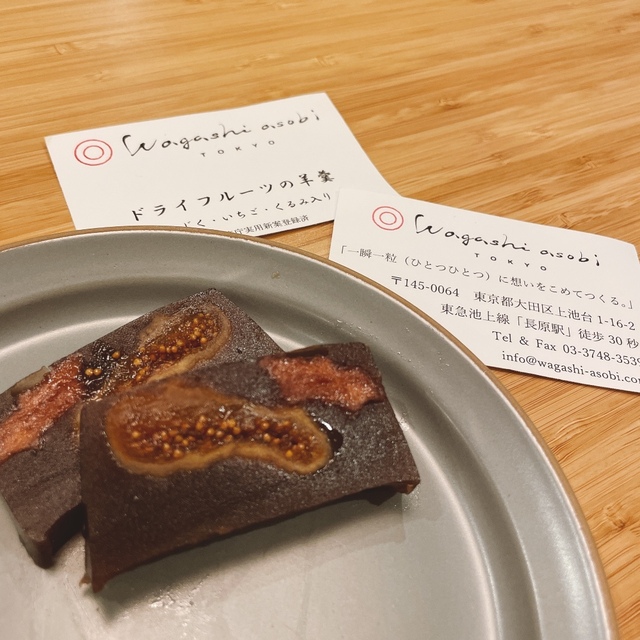 Wagashi asobi
TOKYO
ドライフルーツの羊羹
じく・いちご・くるみ入り
庁実用新案登録済
Wagashi asobi
TOKYO
「一瞬一粒(ひとつひとつ)に想いをこめてつくる。」
〒145-0064 東京都大田区上池台 1-16-2
東急池上線「長原駅」徒歩 30 秒
Tel & Fax 03-3748-3539
info@wagashi-asobi.co